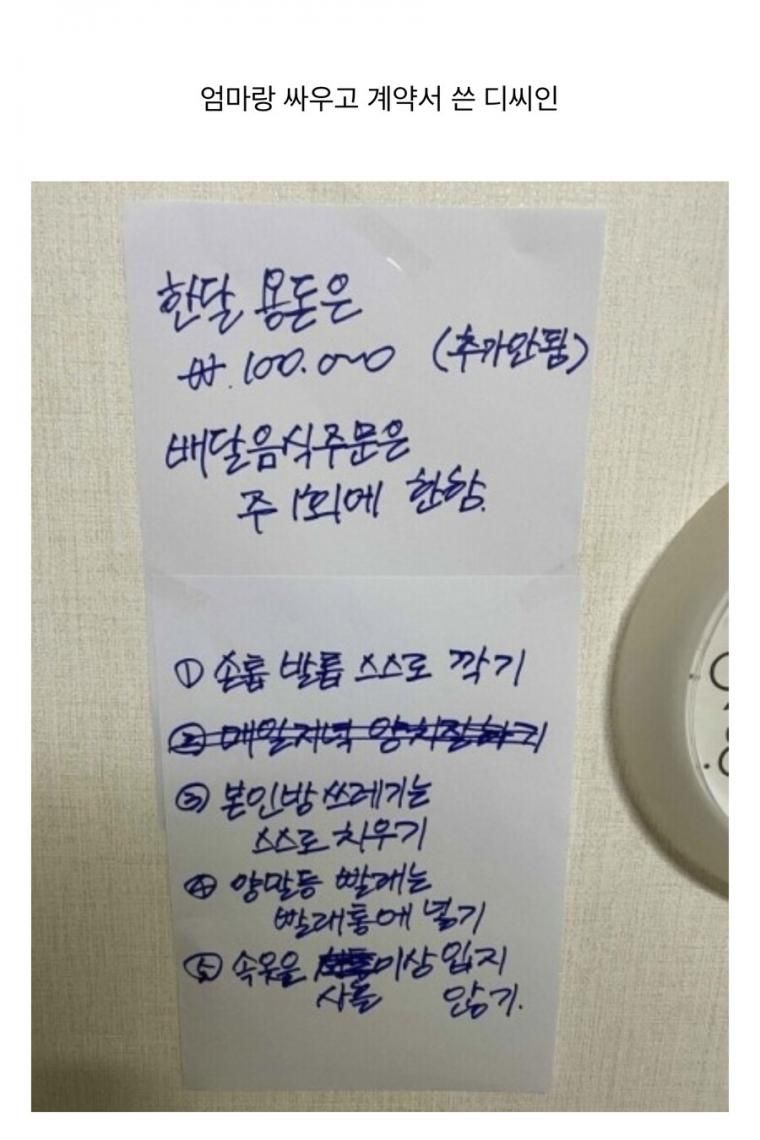 엄마랑 싸우고 계약서 쓴 디씨인
한달 용돈은
₩.100.000 (추가안됨)
배달음식주문은
주 1회에 한함.
① 손톱 발톱 스스로 깍기
② 매일저녁 양치질하기
③ 본인방 쓰레기는
스스로 치우기
④ 양말등 빨래는
빨래통에 넣기
⑤ 속옷은 이상 입지
사흘 않기.